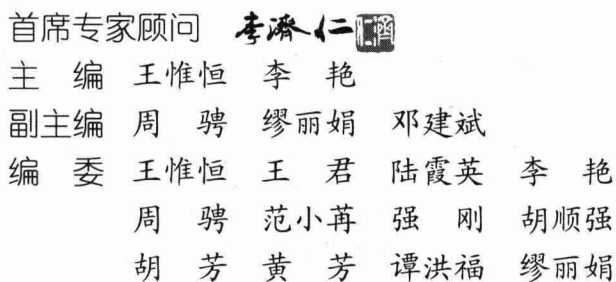 首席专家顾问 李济仁
主 编 王惟恒 李 艳
副主编 周 骋 缪丽娟 邓建斌
编 委 王惟恒 王 君 陆霞英 李 艳
周 骋 范小苒 强 刚 胡顺强
胡 芳 黄 芳 谭洪福 缪丽娟